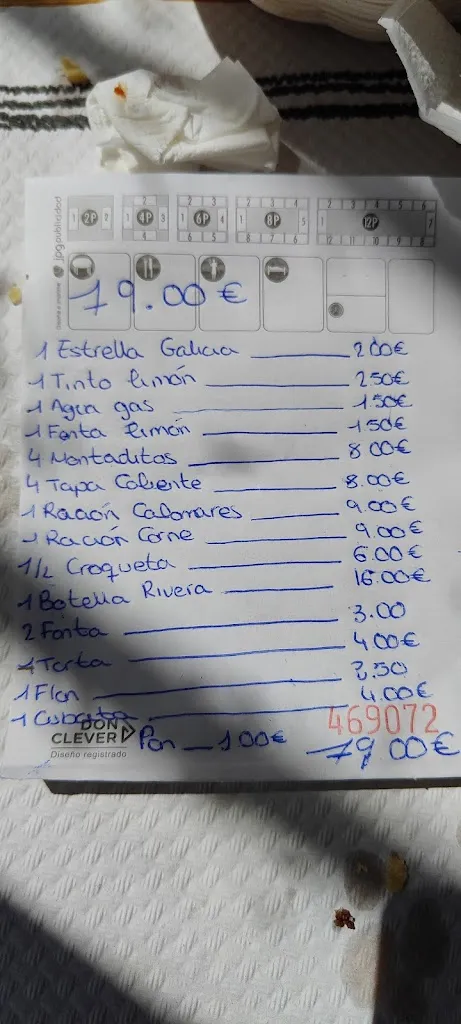 jpg publicidad
2P 4P 6P 8P 12P
79.00 €
1 Estrella Galicia 2 00€
1 Tinto limón 2 50€
1 Agua gas 1.50€
1 Fanta limón 1 50€
4 Montaditos 8 00€
4 Tapa Caliente 8.00€
1 Ración Calamares 9.00€
1 Ración Carne 9.00€
1/2 Croqueta 6.00€
1 Botella Rivera 16.00€
2 Fanta 3.00
1 Tarta 4.00€
1 Flan 2,50
1 Cubata 4.00€
469072
DON CLEVER Pan 1 00€ 79 00€
Diseño registrado